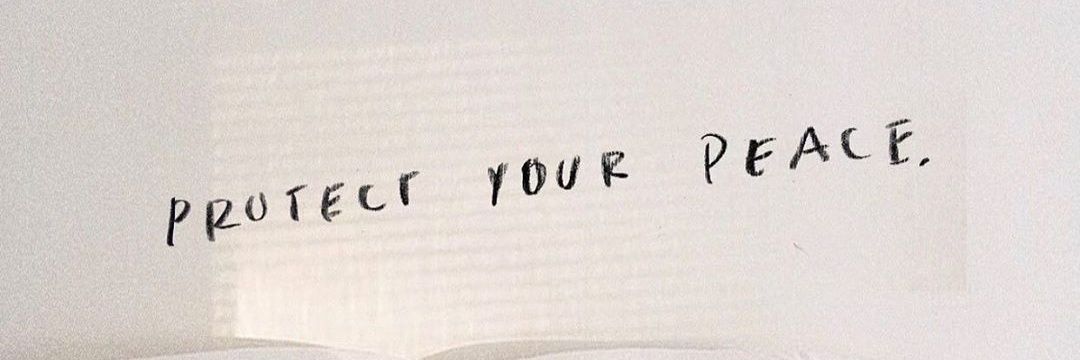 PROTECT YOUR PEACE.